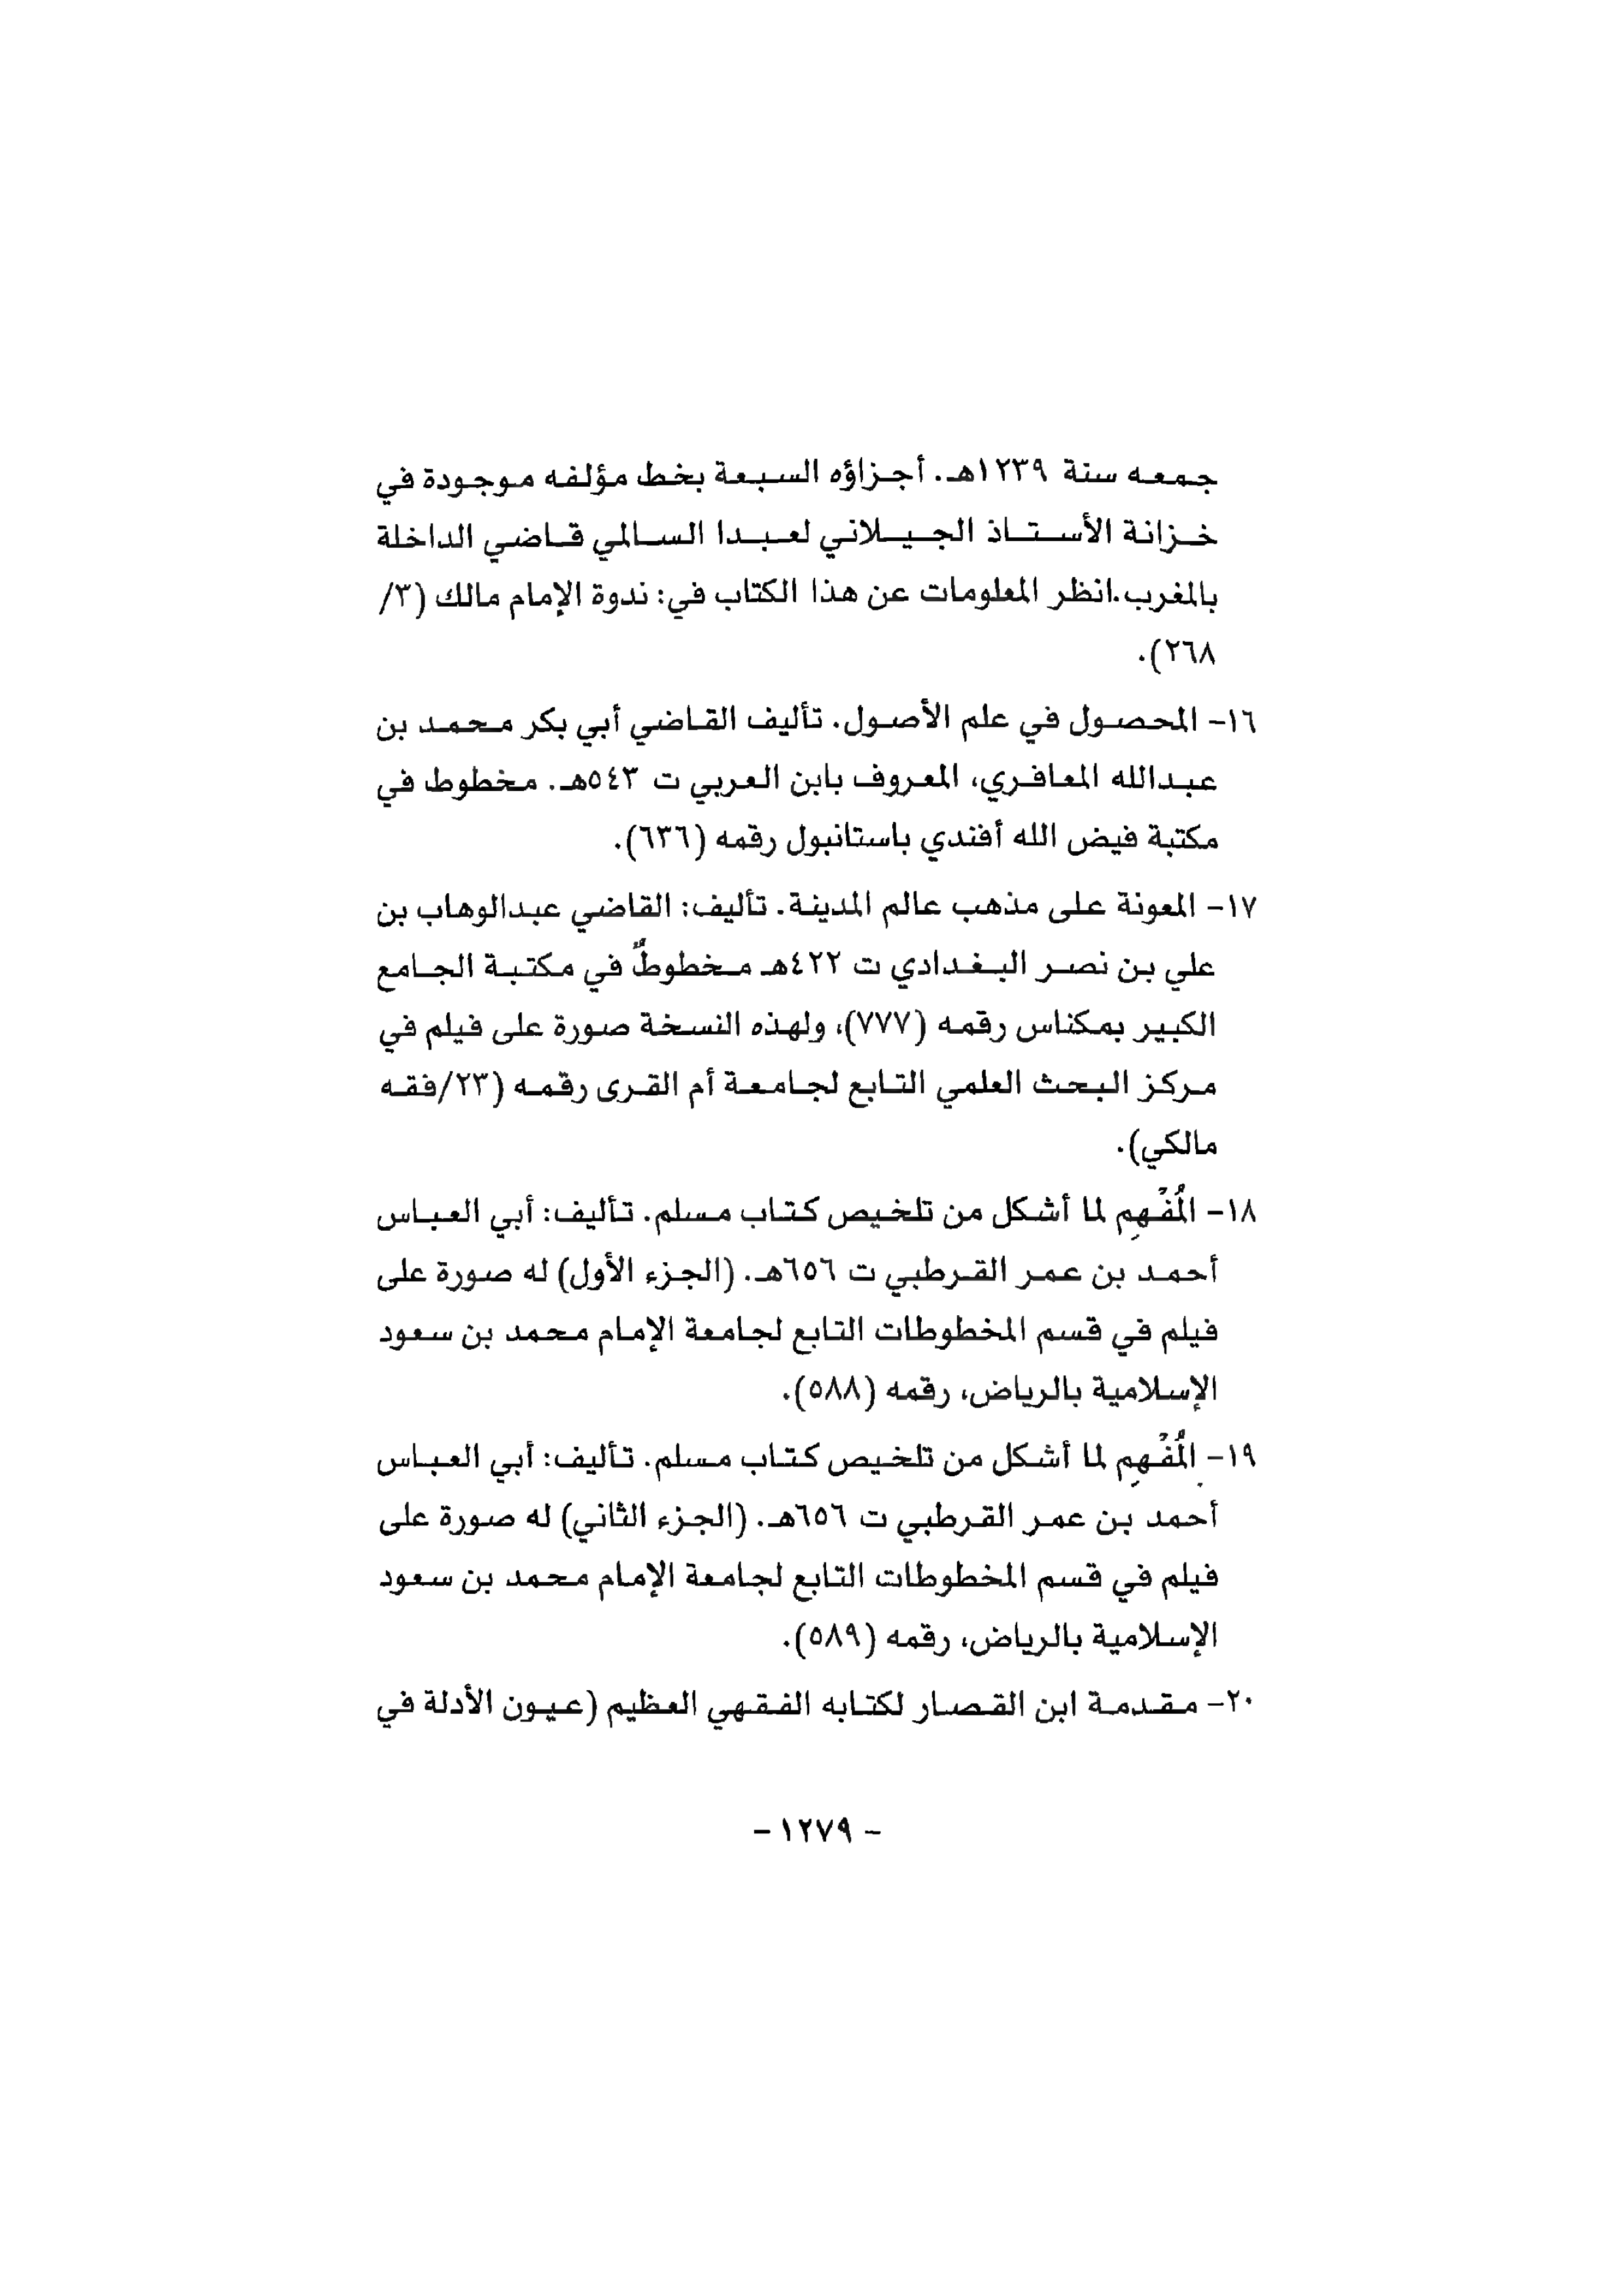 جمعه سنة ١٢٣٩هـ. أجزاؤه السبعة بخط مؤلفه موجودة في
خزانة الأستاذ الجيلاني لعبدا السالمي قاضي الداخلة
بالمغرب.انظر المعلومات عن هذا الكتاب في: ندوة الإمام مالك (٣/
٢٦٨).
١٦- المحصول في علم الأصول. تأليف القاضي أبي بكر محمد بن
عبدالله المعافري، المعروف بابن العربي ت ٥٤٣هـ. مخطوط في
مكتبة فيض الله أفندي باستانبول رقمه (٦٣٦).
١٧- المعونة على مذهب عالم المدينة. تأليف: القاضي عبدالوهاب بن
علي بن نصر البغدادي ت ٤٢٢هـ مخطوطٌ في مكتبة الجامع
الكبير بمكناس رقمه (٧٧٧)، ولهذه النسخة صورة على فيلم في
مركز البحث العلمي التابع لجامعة أم القرى رقمه (٢٣/فقه
مالكي).
١٨- المُفْهِم لما أشكل من تلخيص كتاب مسلم. تأليف: أبي العباس
أحمد بن عمر القرطبي ت ٦٥٦هـ. (الجزء الأول) له صورة على
فيلم في قسم المخطوطات التابع لجامعة الإمام محمد بن سعود
الإسلامية بالرياض، رقمه (٥٨٨).
١٩- المُفْهِم لما أشكل من تلخيص كتاب مسلم. تأليف: أبي العباس
أحمد بن عمر القرطبي ت ٦٥٦هـ. (الجزء الثاني) له صورة على
فيلم في قسم المخطوطات التابع لجامعة الإمام محمد بن سعود
الإسلامية بالرياض، رقمه (٥٨٩).
٢٠- مقدمة ابن القصار لكتابه الفقهي العظيم (عيون الأدلة في
- ١٢٧٩ -